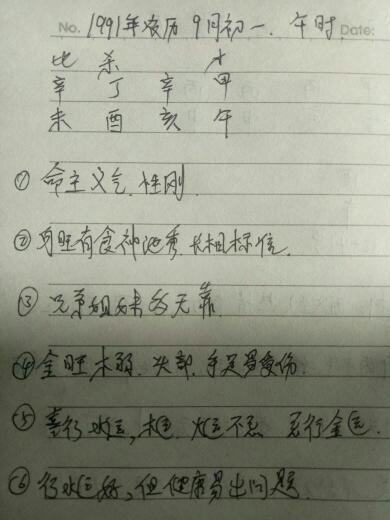 No. 1991年农历9月初一. 午时. Date:
比 杀 才
辛 丁 辛 甲
未 酉 亥 午
① 命主义气. 性刚.
② 身旺有食神泄秀. 长相标位.
③ 兄弟姐妹多无靠.
④ 金旺木弱. 头部. 手足易受伤.
⑤ 喜行水运, 木运. 火运不忌 忌行金运.
⑥ 行水运好, 但健康易出问题.